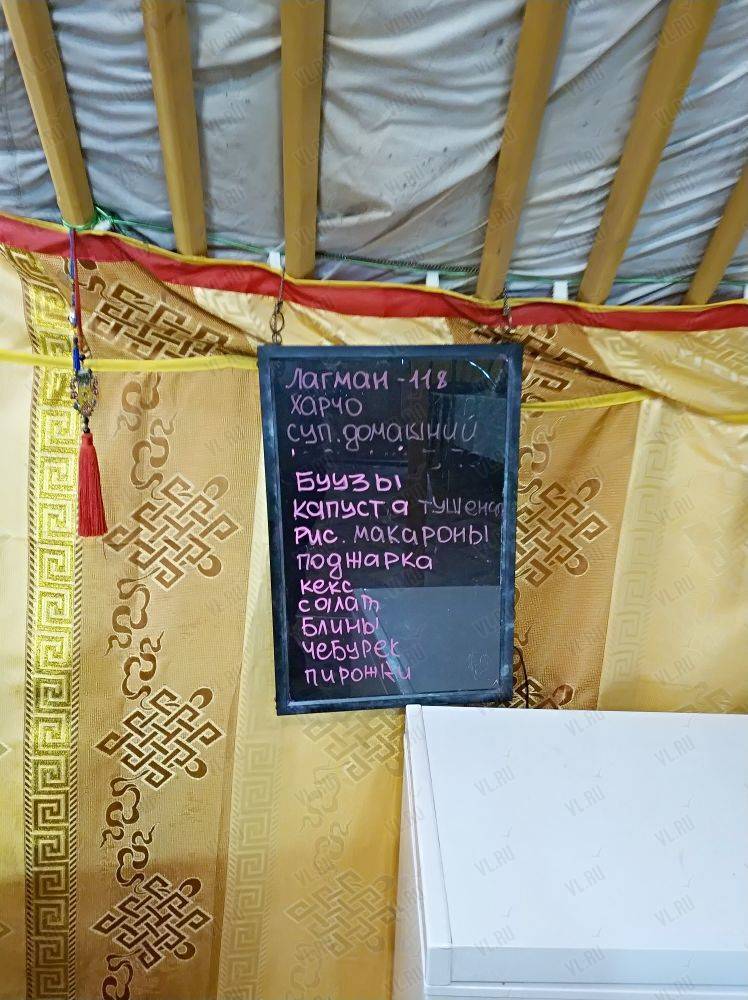 Лагман - 118
Харчо
Суп. домашний
Буузы
капуста тушена
Рис. макароны
поджарка
кекс
салат
Блины
Чебурек
пирожки
VL.RU